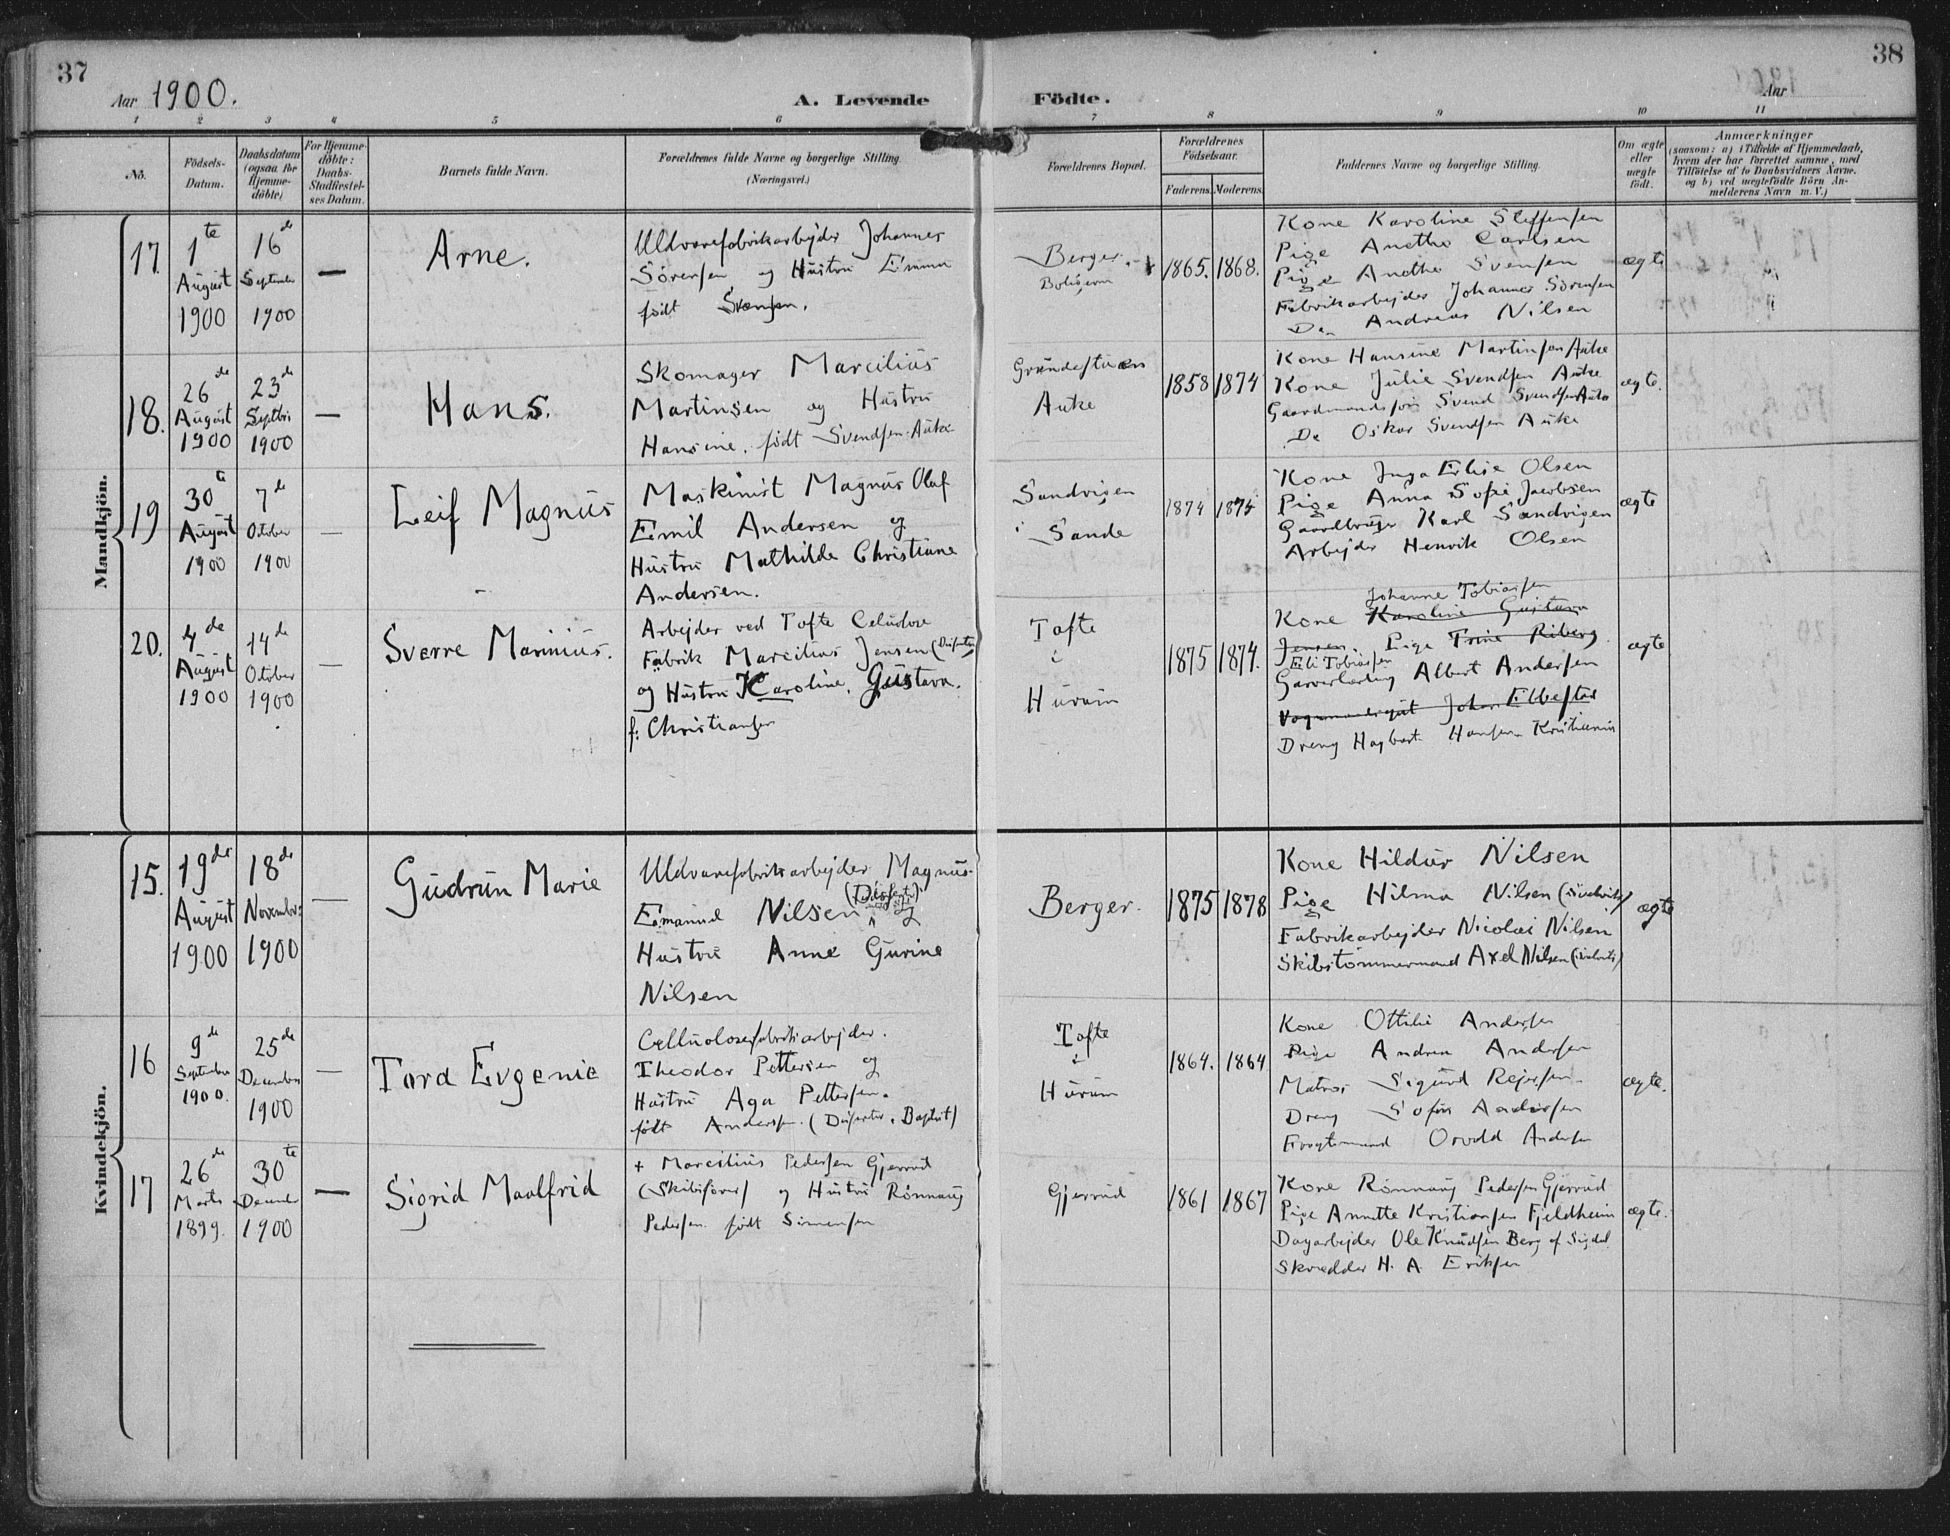 37
Aar 1900.
A. Levende Födte.
38
Aar
1 2 3 4 5 6 7 8 9 10 11
No.
Födsels-
Datum.
Daabsdatum
(ogsaa for
Hjemme-
döbte)
For Hjemme-
döbte:
Daabs-
Stadfæstel-
ses Datum.
Barnets fulde Navn.
Forældrenes fulde Navne og borgerlige Stilling.
(Næringsvei.)
Forældrenes Bopæl.
Forældrenes
Födselsaar.
Faderens. Moderens.
Faddernes Navne og borgerlige Stilling.
Om ægte
eller
uægte
födt.
Anmærkninger
(saasom: a) i Tilfælde af Hjemmedaab,
hvem der har forrettet samme, med
Tilföielse af to Daabsvidners Navne.
og b) ved uægtefödte Börn An-
melderens Navn m. V.)
Mandkjön.
17.
1te
August
1900
16de
September
1900
—
Arne.
Uldvarefabrikarbejder Johannes
Sörensen og Hustru Emma
født Svensen.
Berger.
Boligerne
1865. 1868.
Kone Karoline Steffensen
Pige Anetha Carlsen
Pige Anetha Svensen
Fabrikarbejder Johannes Sörensen
Do Andreas Nilsen
ægte
18.
26de
August
1900
23de
Septbr
1900
—
Hans.
Skomager Marcilius
Martinsen og Hustru
Hansine. født Svendsen Auke
Auke
1858 1874
Kone Hansine Martinsen Auke
Kone Julie Svendsen Auke
Gaardmandssøn Svend Svendsen Auke
Do Oskar Svendsen Auke
ægte.
19
30te
August
1900
7de
October
1900
—
Leif Magnus
Maskinist Magnus Olaf
Emil Andersen og
Hustru Mathilde Christiane
Andersen.
Sandvigen
i Sande
1874 1874
Kone Inga Elise Olsen
Pige Anna Sofie Jacobsen
Gaardbruger Karl Sandvigen
Arbejder Henrik Olsen
ægte
20.
4de
August
1900
14de
October
1900
—
Sverre Marinius.
Arbejder ved Tofte Celulose
Fabrik Marcilius Jensen (Dissenter)
og Hustru Karoline. Gustava.
f: Christiansen
Tofte
i
Hurum
1875 1874.
Johanne Tobiassen
Kone Karoline Gustava
Jensen. Pige Trine Riberg
Eli Tobiassen
Garverlærling Albert Andersen
Johan Ellefstad
Dreng Hagbart Hansen Kristiania
ægte
Kvindekjön.
15.
19de
August
1900
18de
November
1900
—
Gudrun Marie
Uldvarefabrikarbejder Magnus
(Dissenter)
Emanuel Nilsen og
Hustru Anne Gurine
Nilsen
Berger.
1875 1878
Kone Hildur Nilsen
Pige Hilma Nilsen
Fabrikarbejder Nicolai Nilsen
Skibstömmermand Axel Nilsen
ægte
16
9de
September
1900.
25de
December
1900
—
Tora Evgenie
Cellulosefabrikarbejder.
Theodor Pettersen og
Hustru Aga Pettersen.
født Andersen. (Dissenter. Baptist)
Tofte
i
Hurum
1864. 1864
Kone Ottilie Andersen
Pige Andrea Andersen
Matros Sigurd Rejersen
Dreng Sofus Andersen
Andersen
ægte.
17
26de
Marts
1899.
30te
December
1900
—
Sigrid Maalfrid
+ Marcilius Pedersen Gjerrud
(Skibsfører) og Hustru Rønnaug
Pedersen født Simensen
Gjerrud
1861 1867
Kone Rønnaug Pedersen Gjerrud
Pige Annette Kristiansen Fjeldheim
Dagarbejder Ole Knudsen Berg af Sigdal
Skrædder H. A. Eriksen
ægte.